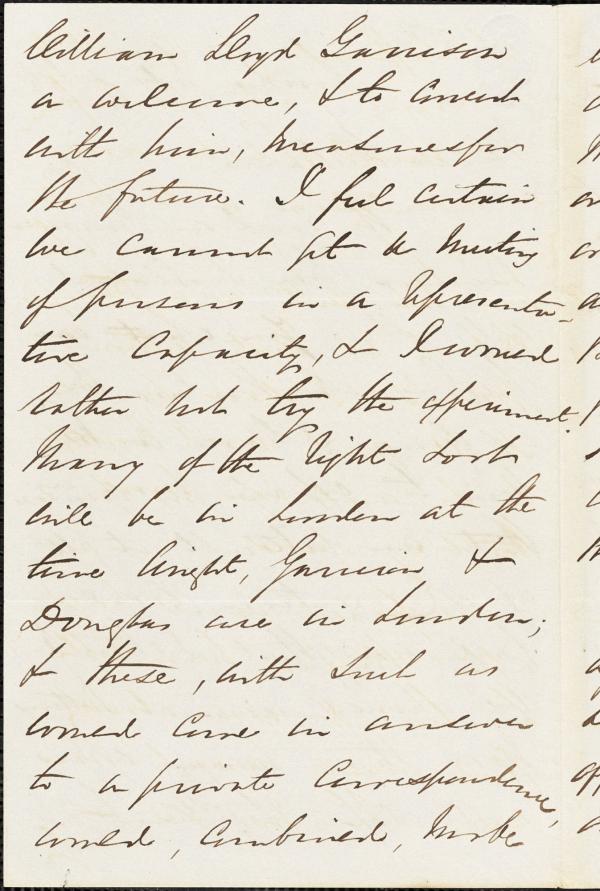 William Lloyd Garrison
a welcome, & to concert
with him, measures for
the future. I feel certain
we cannot get a meeting
of persons in a representa-
tive capacity, & I would
rather not try the experiment.
Many of the right sort
will be in London at the
time Wright, Garrison &
Douglas are in London;
& these, with such as
would come in answer
to a private correspondence,
would, combined, make